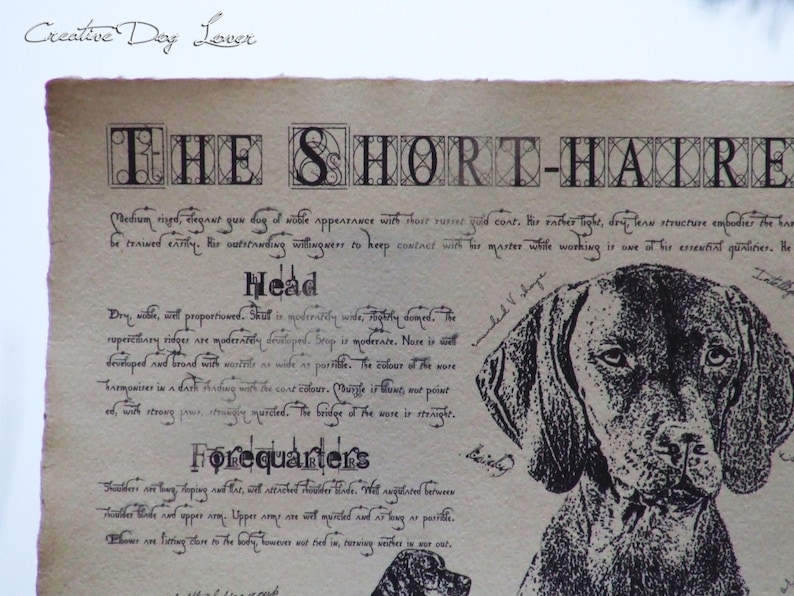 Creative Dog Lover
The Short-haire
Medium sized, elegant gun dog of noble appearance with short russet gold coat. His rather light, dry, lean structure embodies the har
be trained easily. His outstanding willingness to keep contact with his master while working is one of his essential qualities. He
Head
rounded V shape
Intellig
Dry, noble, well proportioned. Skull is moderately wide, slightly domed. The
superciliary ridges are moderately developed. Stop is moderate. Nose is well
developed and broad with nostrils as wide as possible. The colour of the nose
harmonises in a dark shading with the coat colour. Muzzle is blunt, not point
ed, with strong jaws, strongly muscled. The bridge of the nose is straight.
Forequarters
Shoulders are long, sloping and flat, well attached shoulder blade. Well angulated between
shoulder blade and upper arm. Upper arms are well muscled and as long as possible.
Elbows are fitting close to the body, however not tied in, turning neither in nor out.